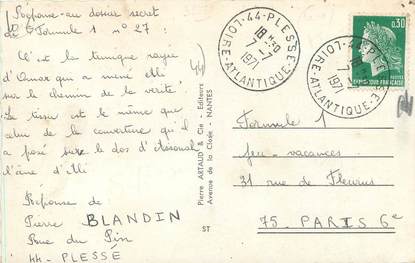 Réponse au dossier secret
de Formule 1 n° 27 :
C'est la tunique rayée
d'Omar qui a mené Ali
sur le chemin de la vérité.
Le tissu est le même que
celui de la couverture qu'il
a posé sur le dos d'
d'âne d'Ali
Réponse de
Pierre BLANDIN
Rue du Pin
44 - PLESSÉ
44
Pierre ARTAUD & Cie - Editeurs
Avenue de la Close - NANTES
ST
44-PLESSE
18 H.30
7-7
1971
LOIRE-ATLANTIQUE
44-PLESSE
18
7-7
1971
LOIRE-ATLANTIQUE
0,30
REPUBLIQUE FRANÇAISE
Formule 1
Jeu-vacances
31 rue de Fleurus
75 - PARIS 6e